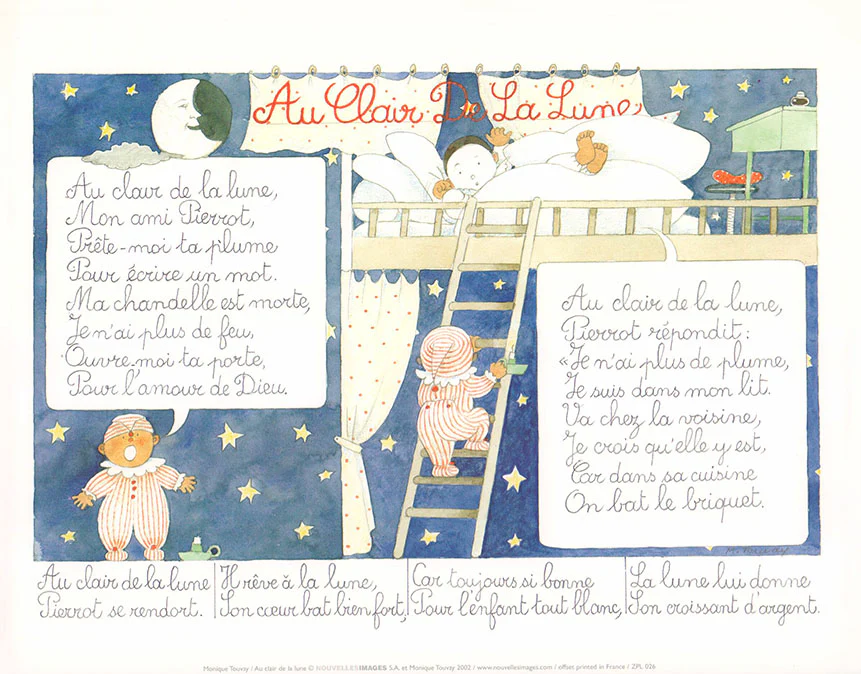 Au Clair De La Lune
Au clair de la lune,
Mon ami Pierrot,
Prête-moi ta plume
Pour écrire un mot.
Ma chandelle est morte,
Je n'ai plus de feu,
Ouvre-moi ta porte,
Pour l'amour de Dieu.
Au clair de la lune,
Pierrot répondit :
«Je n'ai plus de plume,
Je suis dans mon lit.
Va chez la voisine,
Je crois qu'elle y est,
Car dans sa cuisine
On bat le briquet.
Au clair de la lune
Pierrot se rendort.
Il rêve à la lune,
Son cœur bat bien fort,
Car toujours si bonne
Pour l'enfant tout blanc,
La lune lui donne
Son croissant d'argent.
Monique Touvay / Au clair de la lune © NOUVELLES IMAGES S.A. et Monique Touvay 2002 / www.nouvellesimages.com / offset printed in France / ZPL 026